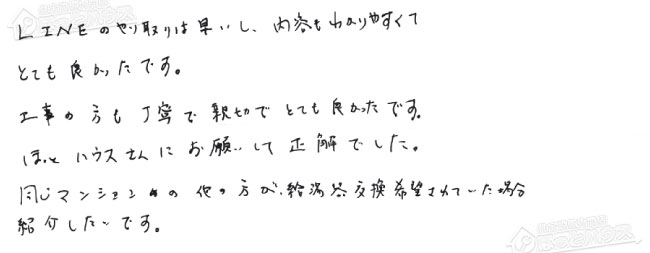 LINEのやり取りは早いし、内容もわかりやすくて
とても良かったです。
工事の方も丁寧で親切でとても良かったです。
ほっとハウスさんにお願いして正解でした。
同じマンションの他の方が、給湯器交換希望されていた場合
紹介したいです。